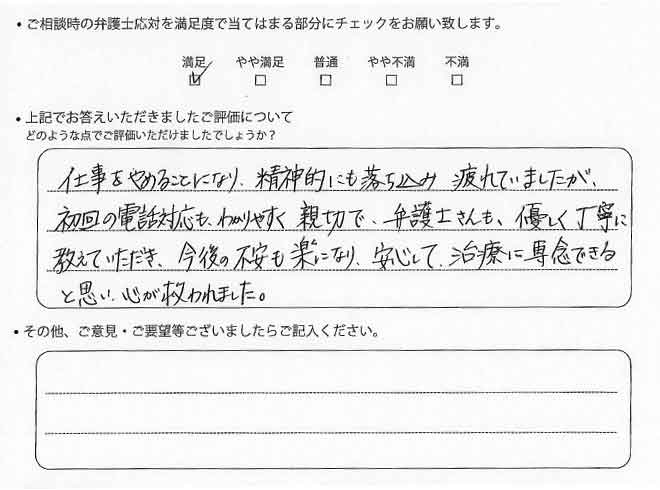 ・ご相談時の弁護士応対を満足度で当てはまる部分にチェックをお願い致します。
満足 やや満足 普通 やや不満 不満
☑ □ □ □ □
・上記でお答えいただきましたご評価について
どのような点でご評価いただけましたでしょうか？
仕事をやめることになり、精神的にも落ち込み 疲れていましたが、
初回の電話対応も、わかりやすく 親切で、弁護士さんも、優しく丁寧に
教えていただき、今後の不安も楽になり、安心して、治療に専念できる
と思い、心が救われました。
・その他、ご意見・ご要望等ございましたらご記入ください。